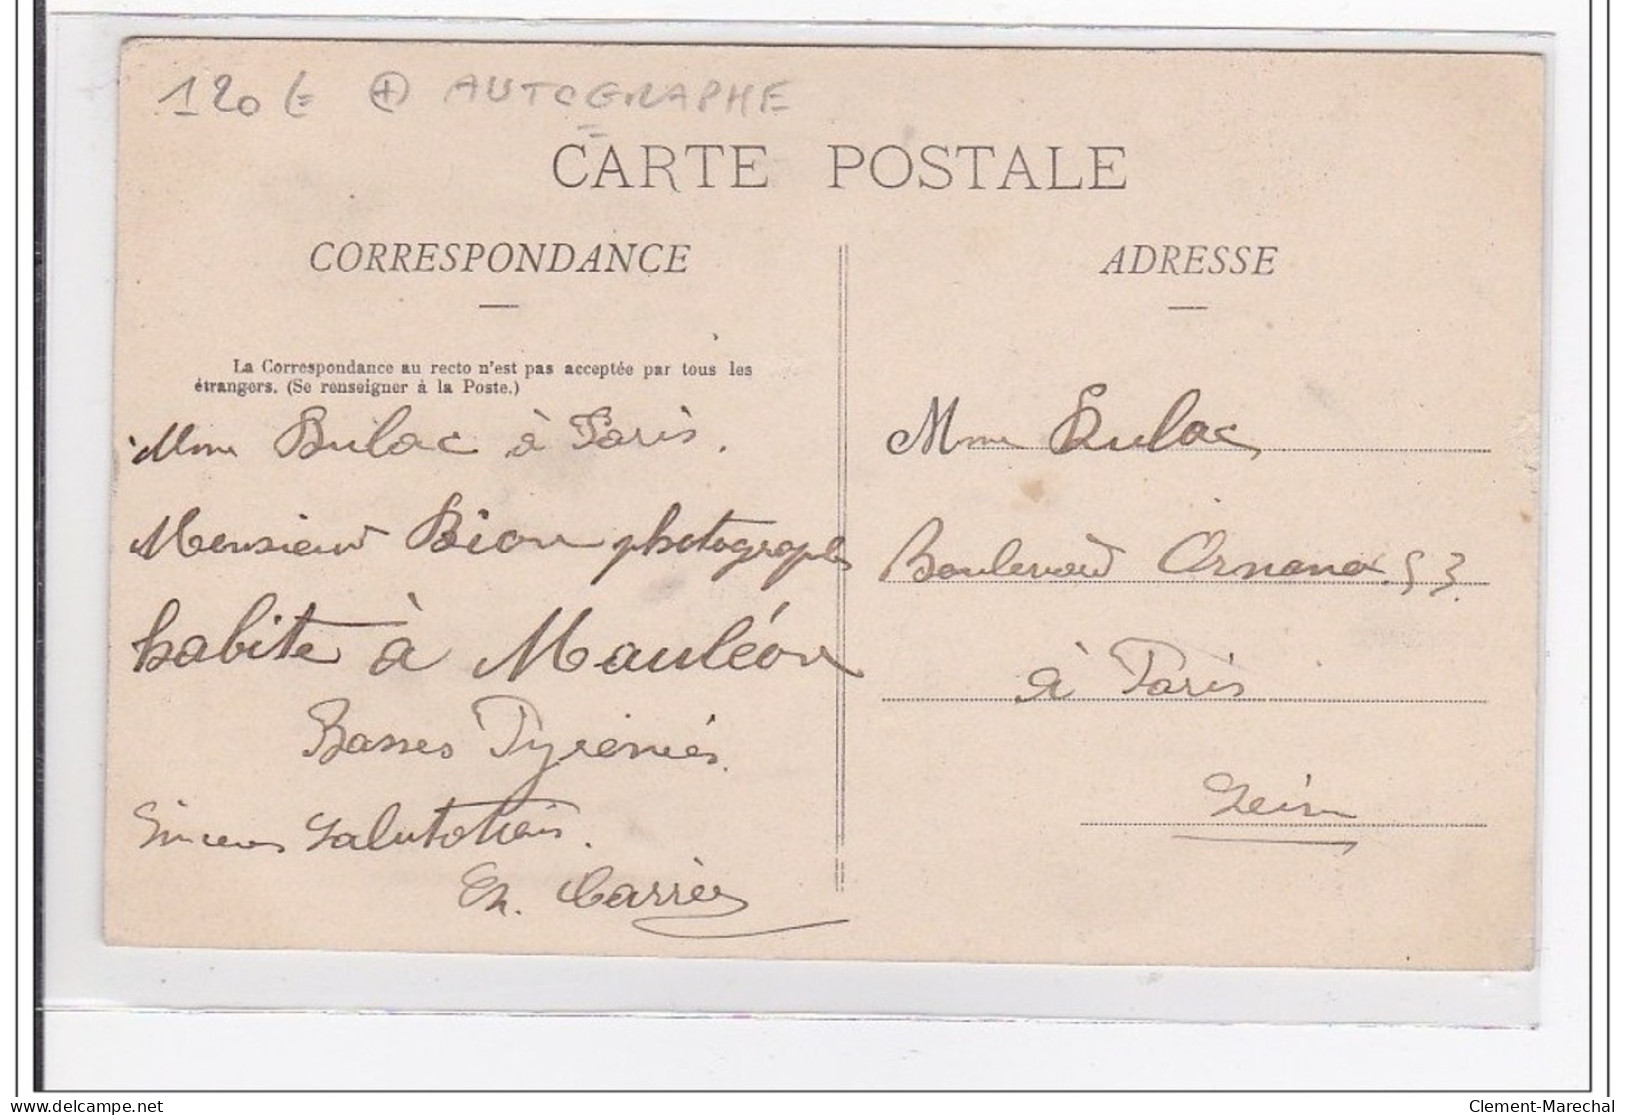 120 € + AUTOGRAPHE
CARTE POSTALE
CORRESPONDANCE
La Correspondance au recto n'est pas acceptée par tous les
étrangers. (Se renseigner à la Poste.)
Mme Bulac à Paris.
Monsieur Bion photographe
habite à Mauléon
Basses Pyrénées.
Sincères Salutations.
Ch. Carrère
ADRESSE
Mme Bulac
Boulevard Ornano. 53.
à Paris
Seine
delcampe.net
Clement-Marechal